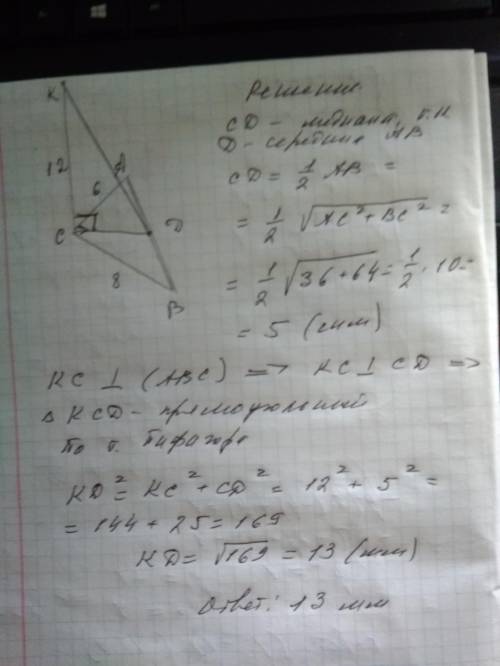 K
Решение.
CD - медиана, т.к
D - середина AB
12
A
6
CD = 1/2 AB =
= 1/2 √AC²+BC² =
C
D
8
= 1/2 √36+64 = 1/2 · 10 =
B
= 5 (мм)
KC ⊥ (ABC) => KC ⊥ CD =>
Δ KCD - прямоугольный
По т. Пифагора
KD² = KC² + CD² = 12² + 5² =
= 144 + 25 = 169
KD = √169 = 13 (мм)
Ответ: 13 мм